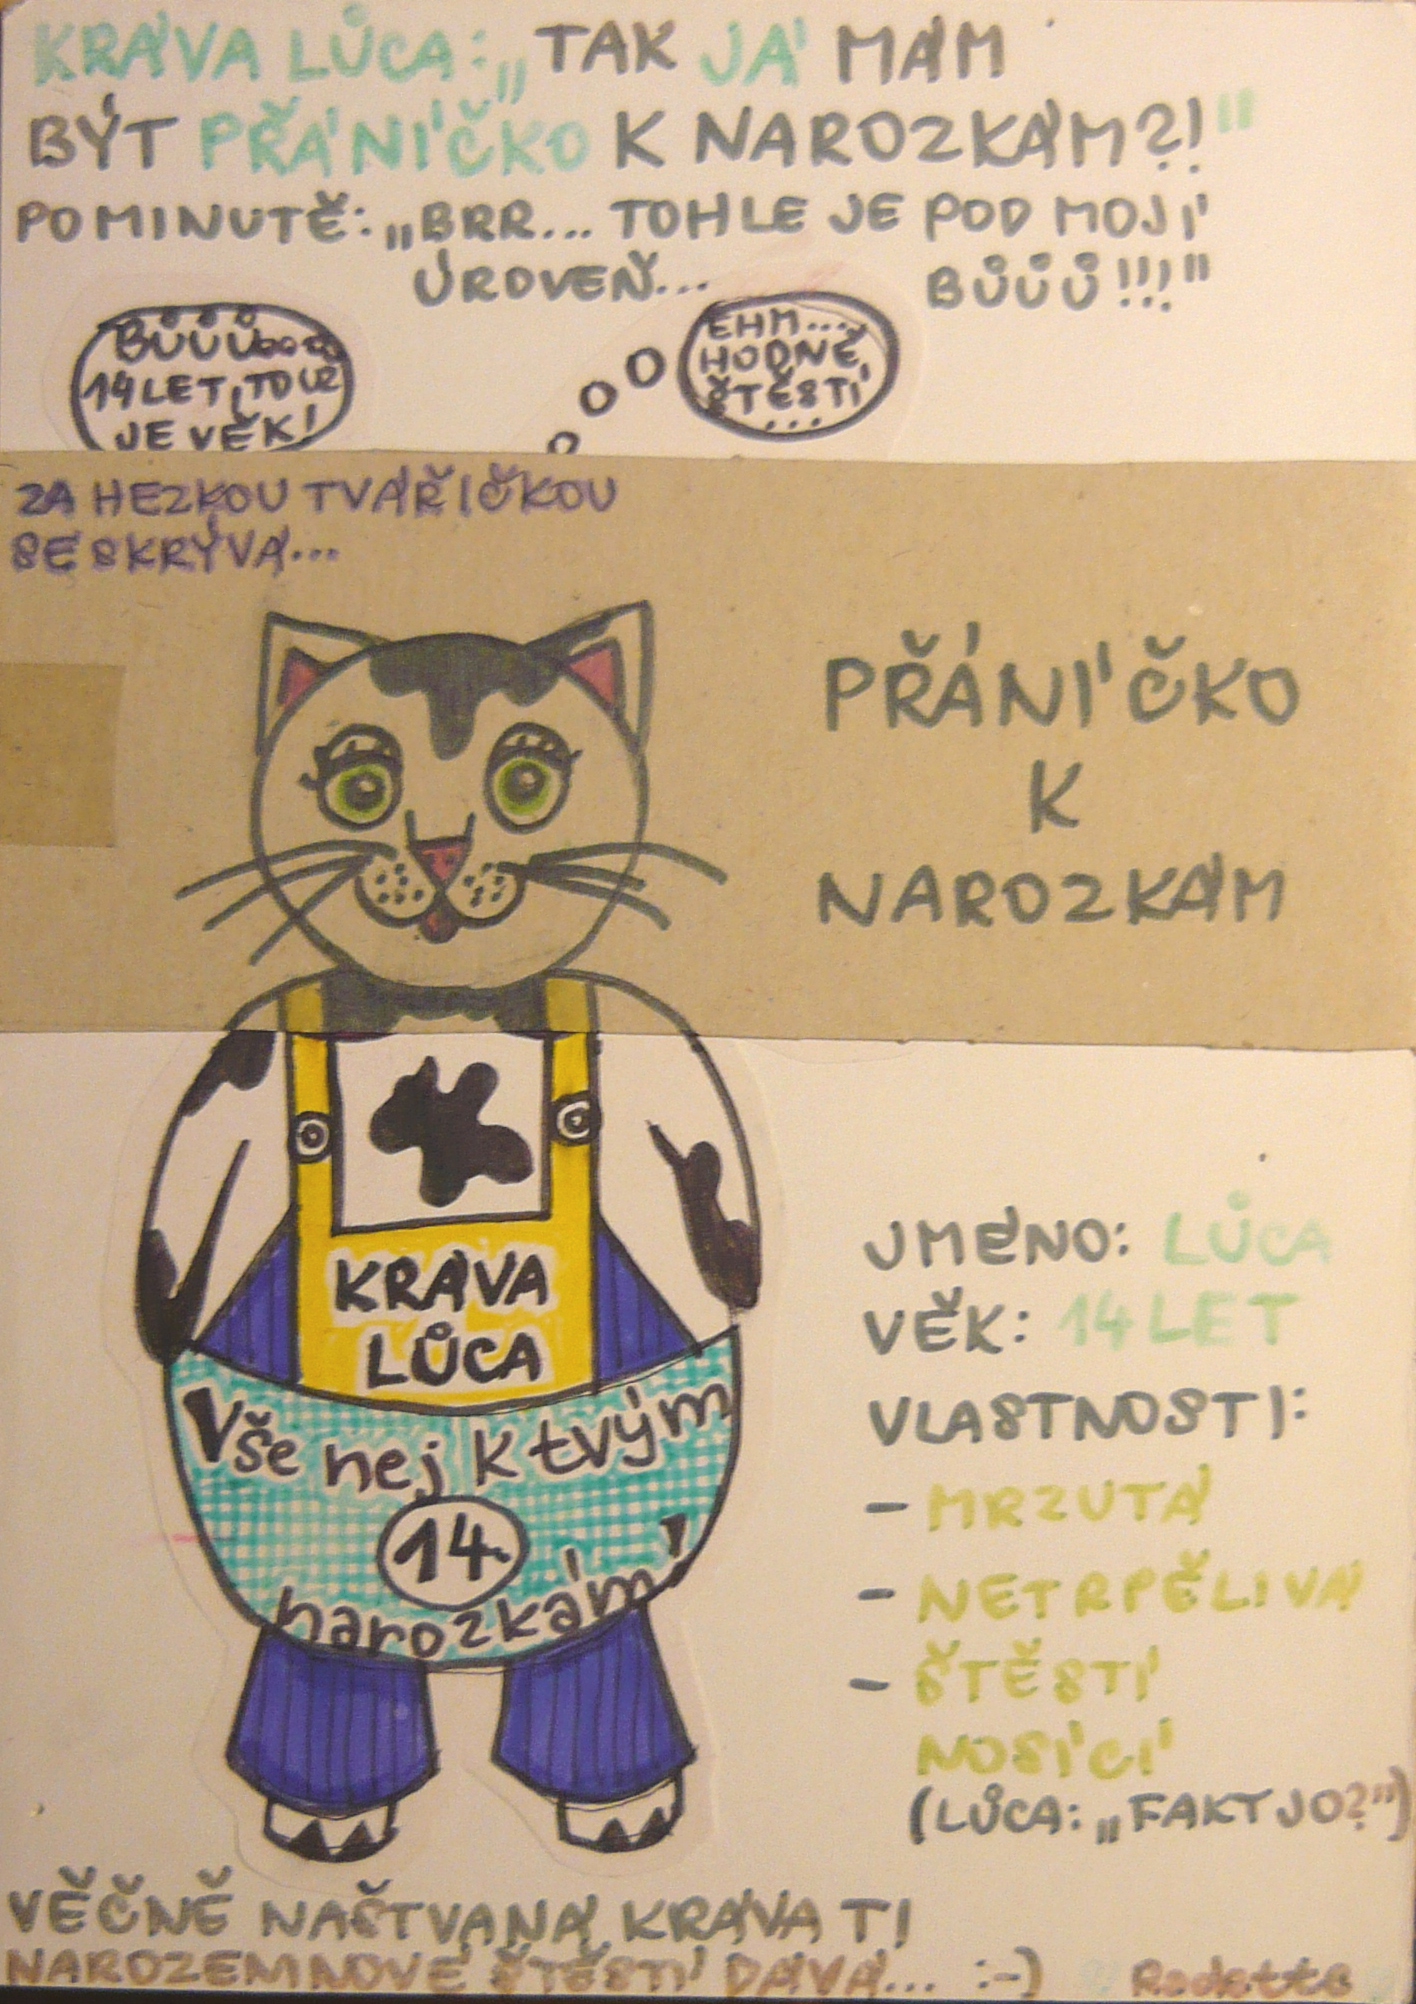 KRÁVA LŮCA: „TAK JÁ MÁM
BÝT PŘÁNÍČKO K NAROZKÁM?!"
PO MINUTĚ: „BRR... TOHLE JE POD MOJÍ
ÚROVEŇ... BŮŮŮ!!!"
14 LET, TO UŽ
JE VĚK!
EHM...
HODNĚ
ŠTĚSTÍ
...
ZA HEZKOU TVÁŘIČKOU
SE SKRÝVÁ...
PŘÁNÍČKO
K
NAROZKÁM
KRÁVA
LŮCA
Vše nej k tvým
14.
narozkám!
JMÉNO: LŮCA
VĚK: 14 LET
VLASTNOSTI:
- MRZUTÁ
- NETRPĚLIVÁ
- ŠTĚSTÍ
NOSÍCÍ
(LŮCA: „FAKT JO?")
VĚČNĚ NAŠTVANÁ KRÁVA TI
NAROZEMNOVÉ ŠTĚSTÍ DÁVÁ... :-)